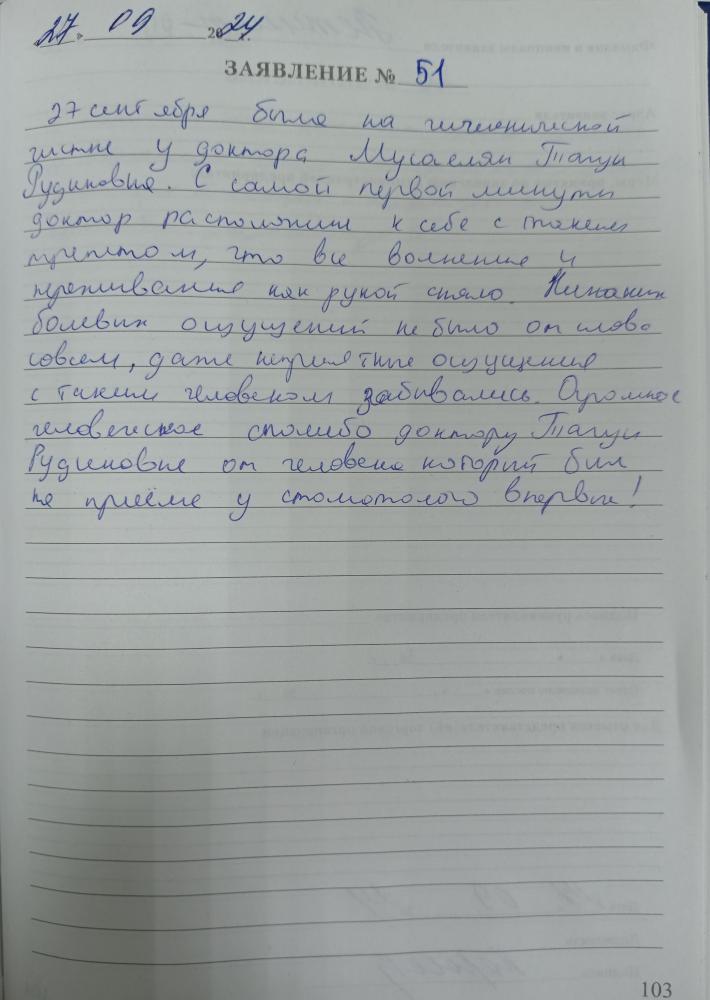 27 09 2024
ЗАЯВЛЕНИЕ № 51
27 сентября была на гигиенической
чистке у доктора Мусаелян Тагуи
Рудиковне. С самой первой минуты
доктор расположил к себе с таким
трепетом, что все волнение и
переживание как рукой сняло. Никаких
болевых ощущений не было от слово
совсем, даже неприятные ощущения
с таким человеком забывались. Огромное
человеческое спосибо доктору Тагуи
Рудиковне от человека который был
на приёме у стоматолога впервые!
103